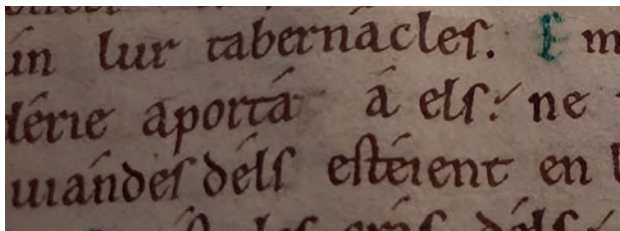 in lur tabernácles. E m
dérie aportá á els. ne
uiandes dels esteient en